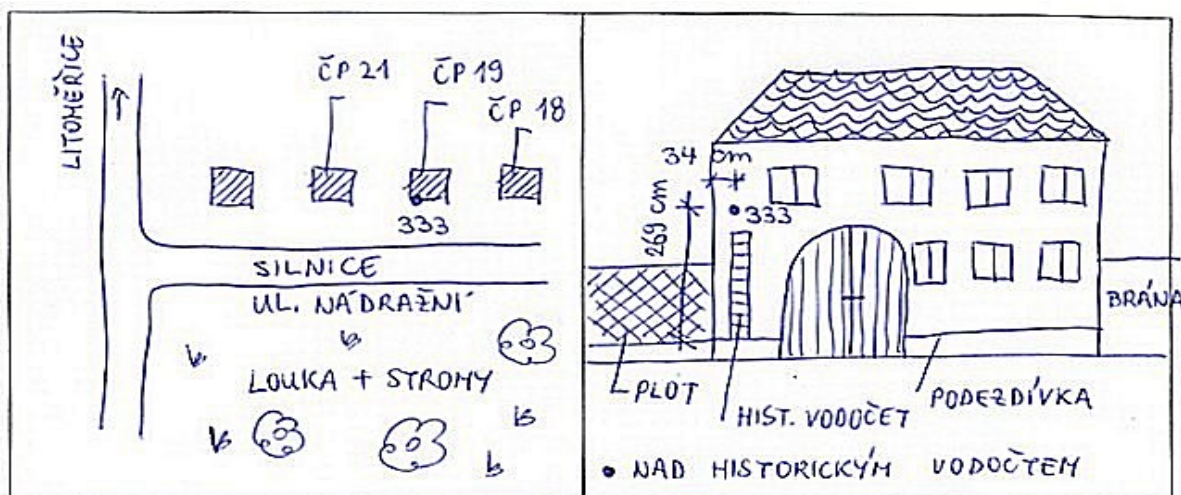 LITOMĚŘICE
ČP 21
ČP 19
ČP 18
333
SILNICE
UL. NÁDRAŽNÍ
LOUKA + STROMY
34 cm
269 cm
333
BRÁNA
PLOT
HIST. VODOČET
PODEZDÍVKA
• NAD HISTORICKÝM VODOČTEM